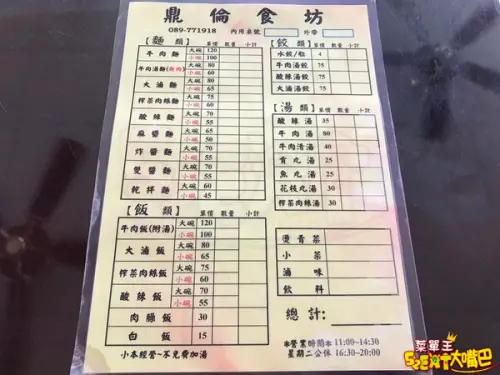 鼎倫食坊
089-771918 內用桌號 外帶
【麵 類】 單價 數量 小計
牛肉麵 大碗 120
小碗 100
牛肉湯麵(無肉) 大碗 70
小碗 60
大滷麵 大碗 80
小碗 65
榨菜肉絲麵 大碗 75
小碗 60
酸辣麵 大碗 70
小碗 55
麻醬麵 大碗 65
小碗 50
炸醬麵 大碗 70
小碗 55
雙醬麵 大碗 75
小碗 60
乾拌麵 大碗 60
小碗 45
【飯 類】 單價 數量 小計
牛肉飯(附湯) 大碗 120
小碗 100
大滷飯 大碗 80
小碗 65
榨菜肉絲飯 大碗 75
小碗 60
酸辣飯 大碗 70
小碗 55
肉臊飯 30
白飯 15
小本經營~不免費加湯
【餃 類】 單價 數量 小計
水餃/粒 4
牛肉湯餃 75
酸辣湯餃 75
大滷湯餃 75
【湯 類】 單價 數量 小計
酸辣湯 35
牛肉湯 80
牛肉清湯 40
貢丸湯 30
魚丸湯 30
花枝丸湯 30
榨菜肉絲湯 30
燙青菜
小菜
滷味
飲料
總計:
*營業時間* 11:00~14:30
星期二公休 16:30~20:00
菜單王
大嘴巴